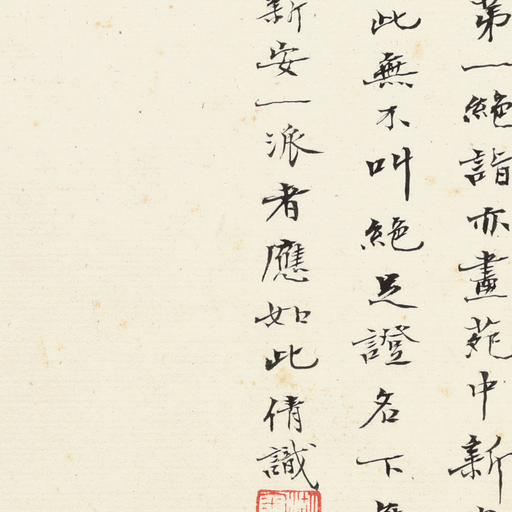 第一絕詣亦畫苑中新
此無不叫絕足證名下無
新安一派者應如此倩識